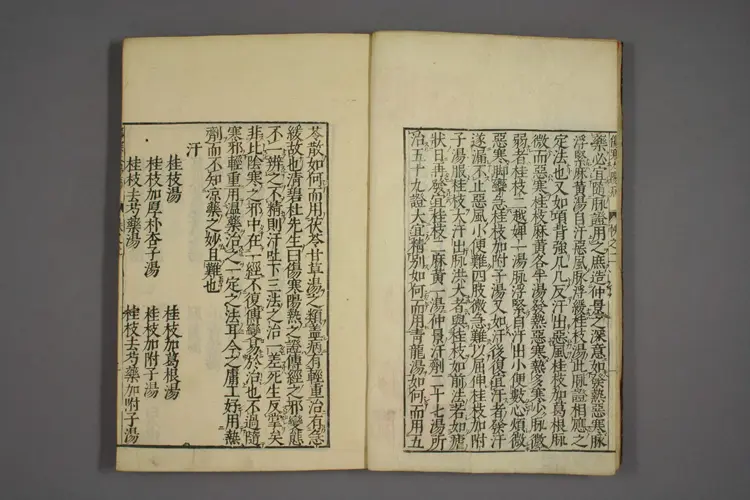 藥必宜隨脉證用之庶造仲景之深意如發熱惡寒脉
浮緊麻黄湯自汗惡風脉浮緩桂枝湯此脉證相應之
定法也又如項背強几几反汗出惡風桂枝加葛根脉
微而惡寒桂枝麻黄各半湯熱惡寒熱多寒少脉微
弱者桂枝二越婢一湯脉浮緊自汗出小便數心煩微
惡寒脚攣急桂枝加附子湯又如汗後復宜汗者發汗
遂漏不止惡風小便難四肢微急難以屈伸桂枝加附
子湯服桂枝大汗出脉洪大者與桂枝如前法若如瘧
狀日再發宜桂枝二麻黄一湯仲景汗劑二十七湯所
治五十九證大宜精別如何而用青龍湯如何而用五
苓散如何而用茯苓甘草湯之類蓋病有輕重治有急
緩故也清碧杜先生曰傷寒陽熱之證傳經之邪變態
不一辨之不精則汗吐下三法之治一差死生反掌矣
非比陰寒之邪中在一經不復傳變易於治也不過隨
寒邪輕重用溫藥治之一定之法耳今之庸工好用熱
劑而不知涼藥之妙且難也
汗
桂枝湯
桂枝加葛根湯
桂枝加厚朴杏子湯
桂枝加附子湯
桂枝去芍藥湯
桂枝去芍藥加附子湯